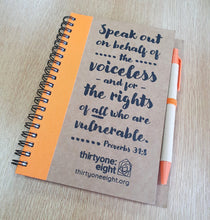 Speak out
on behalf of
the
voiceless
and for
the rights
of all who are
vulnerable.
Proverbs 31:8
thirtyone:
eight
thirtyoneeight.org